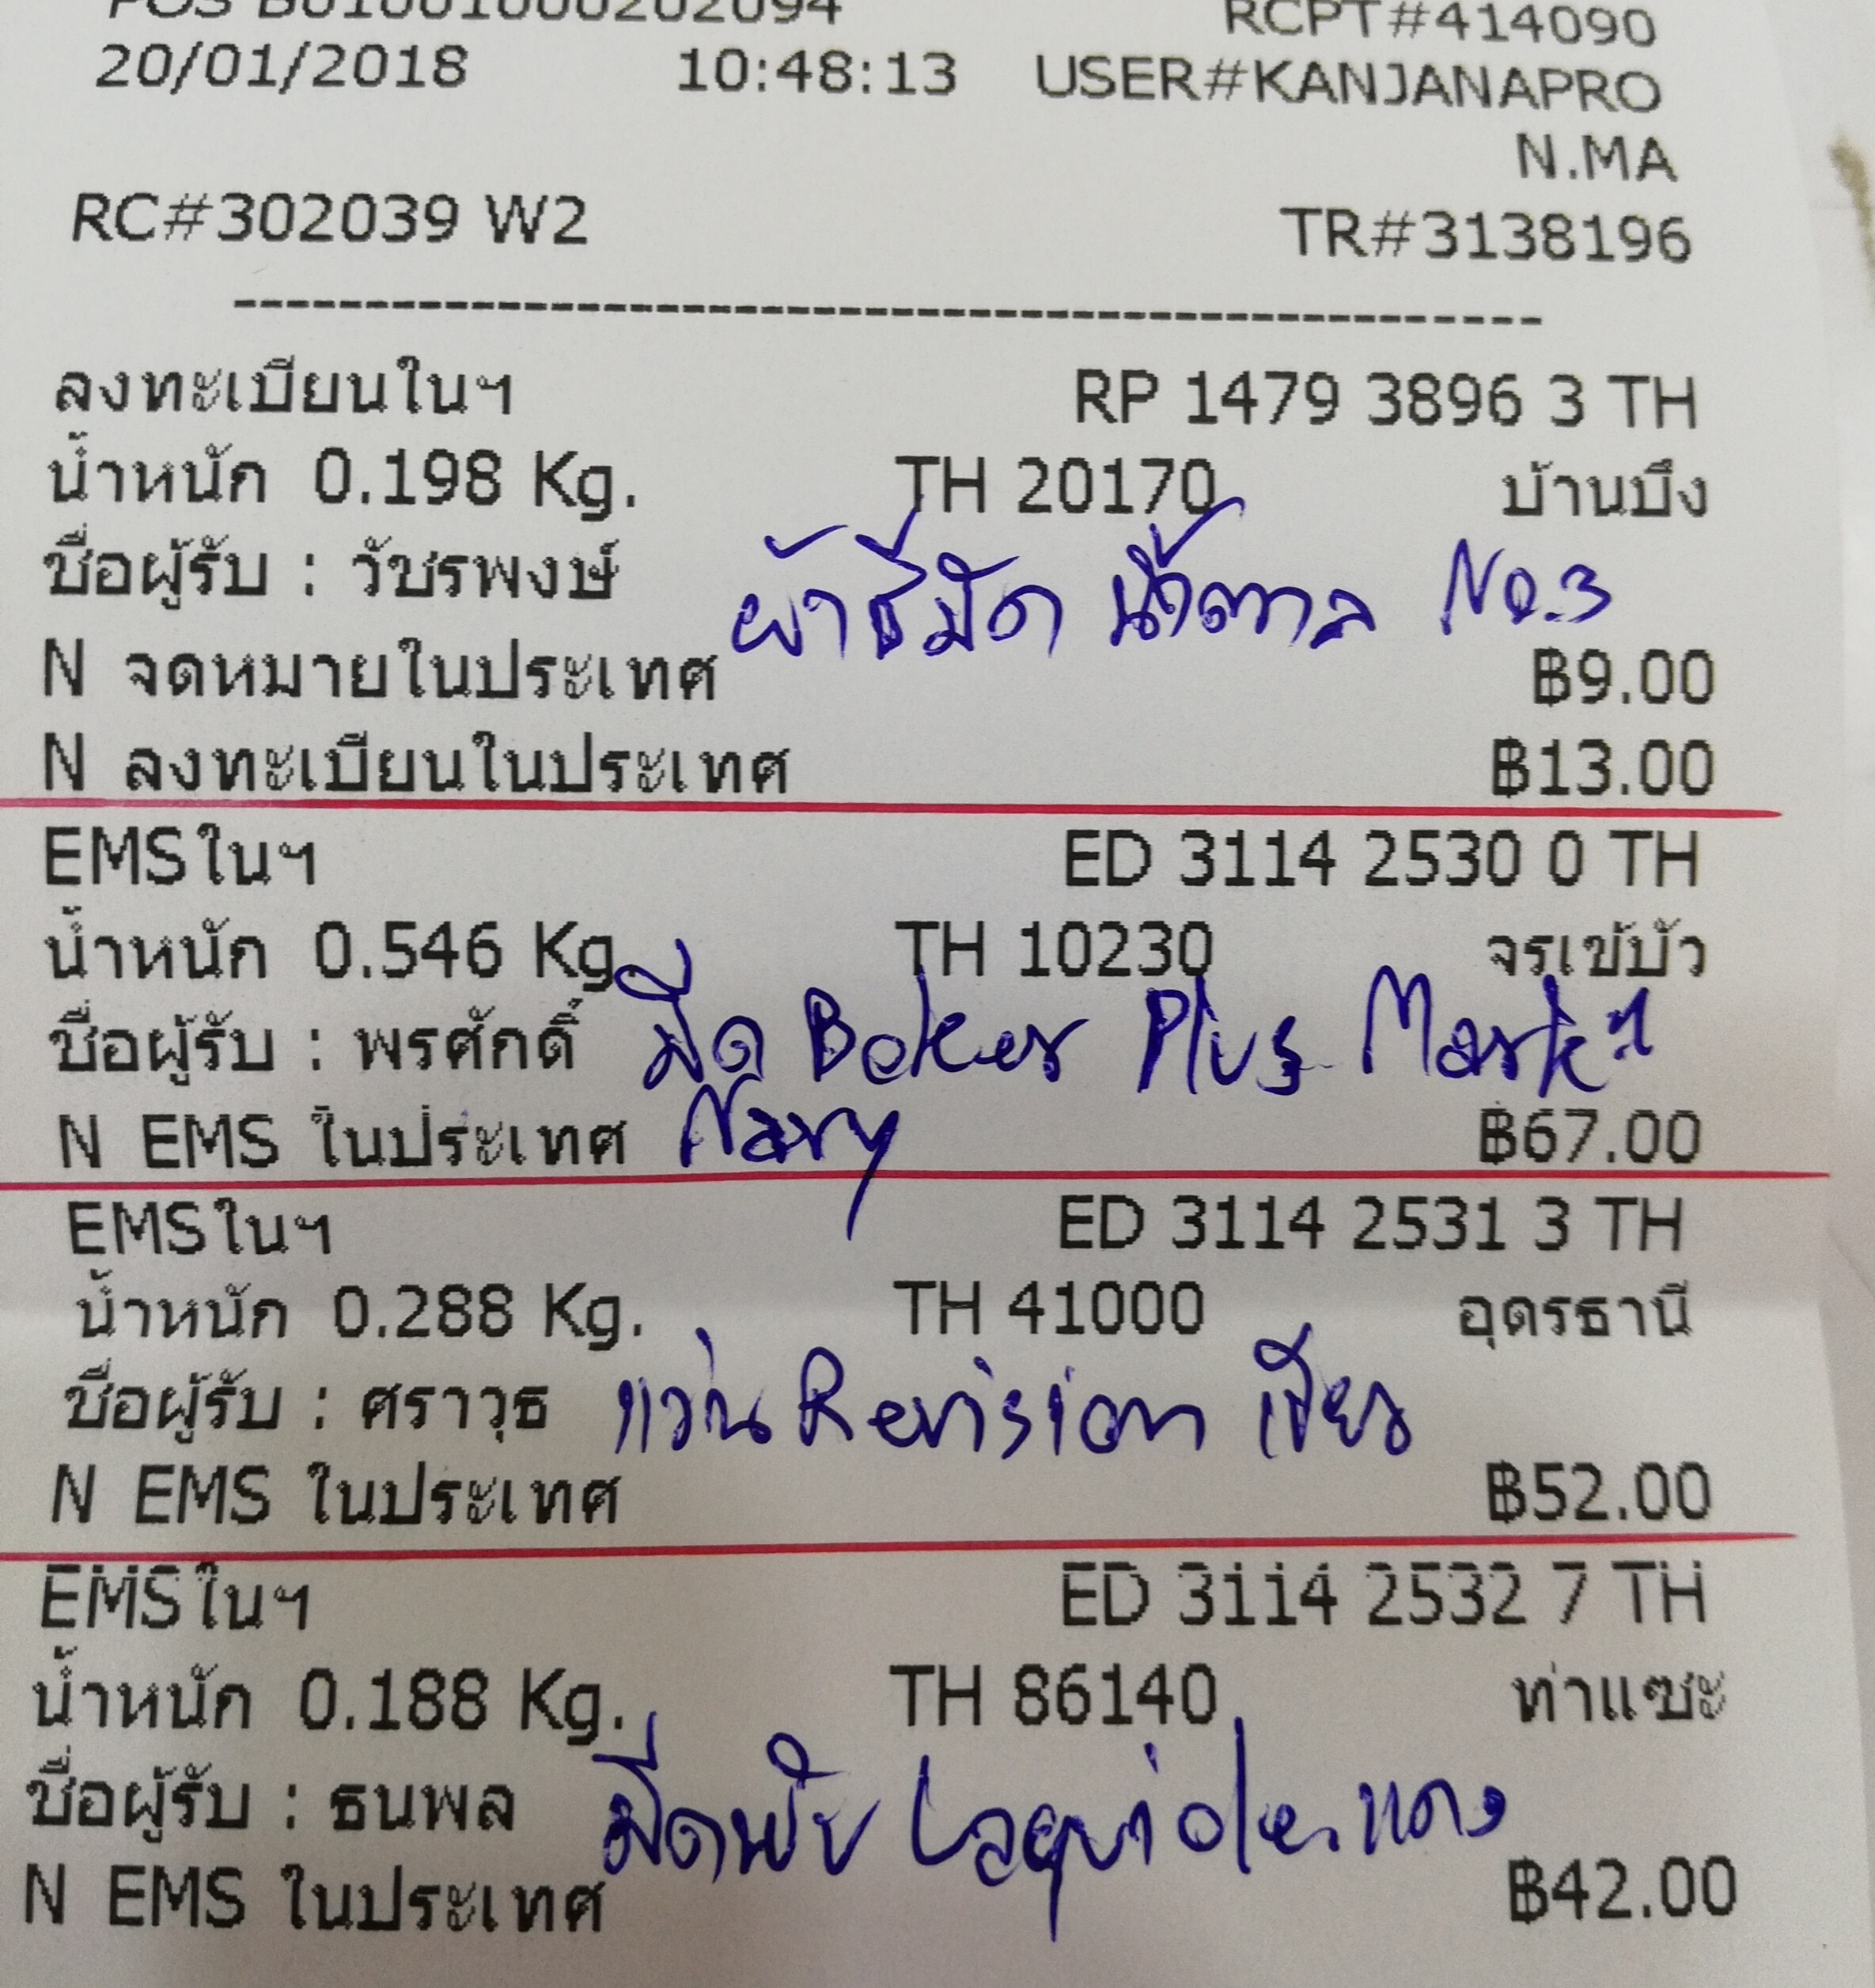 POS B01001000202094 RCPT#414090
20/01/2018 10:48:13 USER#KANJANAPRO
N.MA
RC#302039 W2 TR#3138196
--------------------------------------------------
ลงทะเบียนในฯ RP 1479 3896 3 TH
น้ำหนัก 0.198 Kg. TH 20170 บ้านบึง
ชื่อผู้รับ : วัชรพงษ์ ผ้าชีมัค น้ำตาล No.3
N จดหมายในประเทศ ฿9.00
N ลงทะเบียนในประเทศ ฿13.00
EMSในฯ ED 3114 2530 0 TH
น้ำหนัก 0.546 Kg. TH 10230 จรเข้บัว
ชื่อผู้รับ : พรศักดิ์ มีด Boker Plus Mark 1
N EMS ในประเทศ Navy ฿67.00
EMSในฯ ED 3114 2531 3 TH
น้ำหนัก 0.288 Kg. TH 41000 อุดรธานี
ชื่อผู้รับ : ศราวุธ แว่น Revision เขียว
N EMS ในประเทศ ฿52.00
EMSในฯ ED 3114 2532 7 TH
น้ำหนัก 0.188 Kg. TH 86140 ท่าแซะ
ชื่อผู้รับ : ธนพล มีดพับ Laguiole แดง
N EMS ในประเทศ ฿42.00